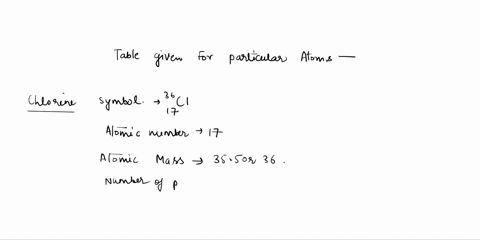 Table given for particular Atoms —
Chlorine symbol. → ³⁶₁₇Cl
Atomic number → 17
Atomic Mass → 35.5 or 36.
Number of p